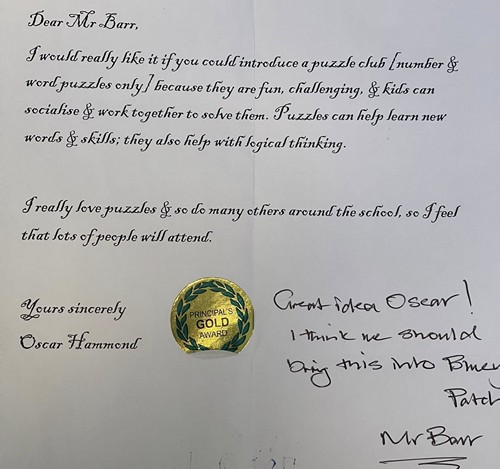 Dear Mr Barr,
I would really like it if you could introduce a puzzle club [number &
word puzzles only] because they are fun, challenging, & kids can
socialise & work together to solve them. Puzzles can help learn new
words & skills; they also help with logical thinking.
I really love puzzles & so do many others around the school, so I feel
that lots of people will attend.
Yours sincerely
Oscar Hammond
PRINCIPAL'S
GOLD
AWARD
Great idea Oscar!
I think we should
bring this into
Patch
Mr Barr